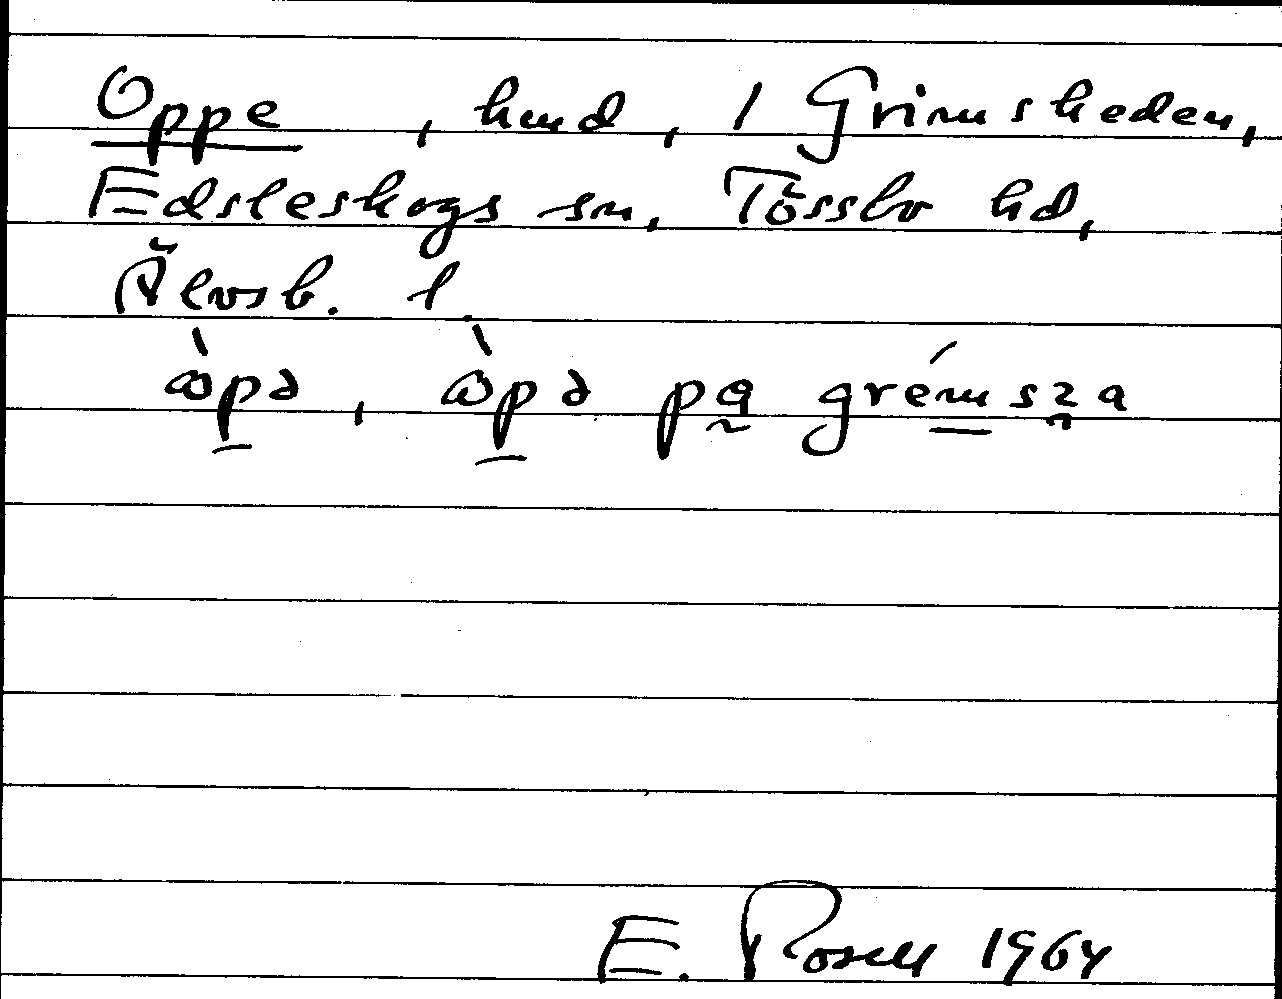 Oppe, hund, 1 Grimsheden,
Edsleskogs sn, Tössbo hd,
Älvsb. l.
ɷ̀pə, ɷ̀pə pa grémsza
E. Rosell 1964